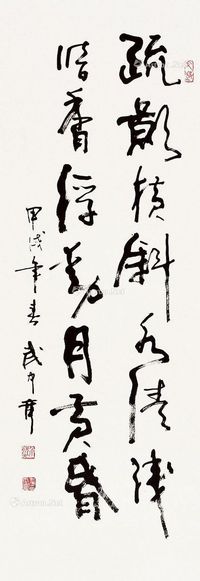 疏影横斜水清浅
暗香浮动月黄昏
甲戌年春武中奇